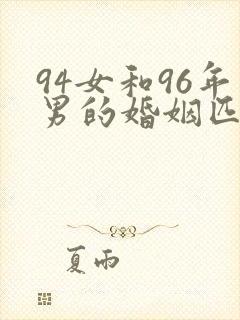 94女和96年
男的婚姻匹
夏雨